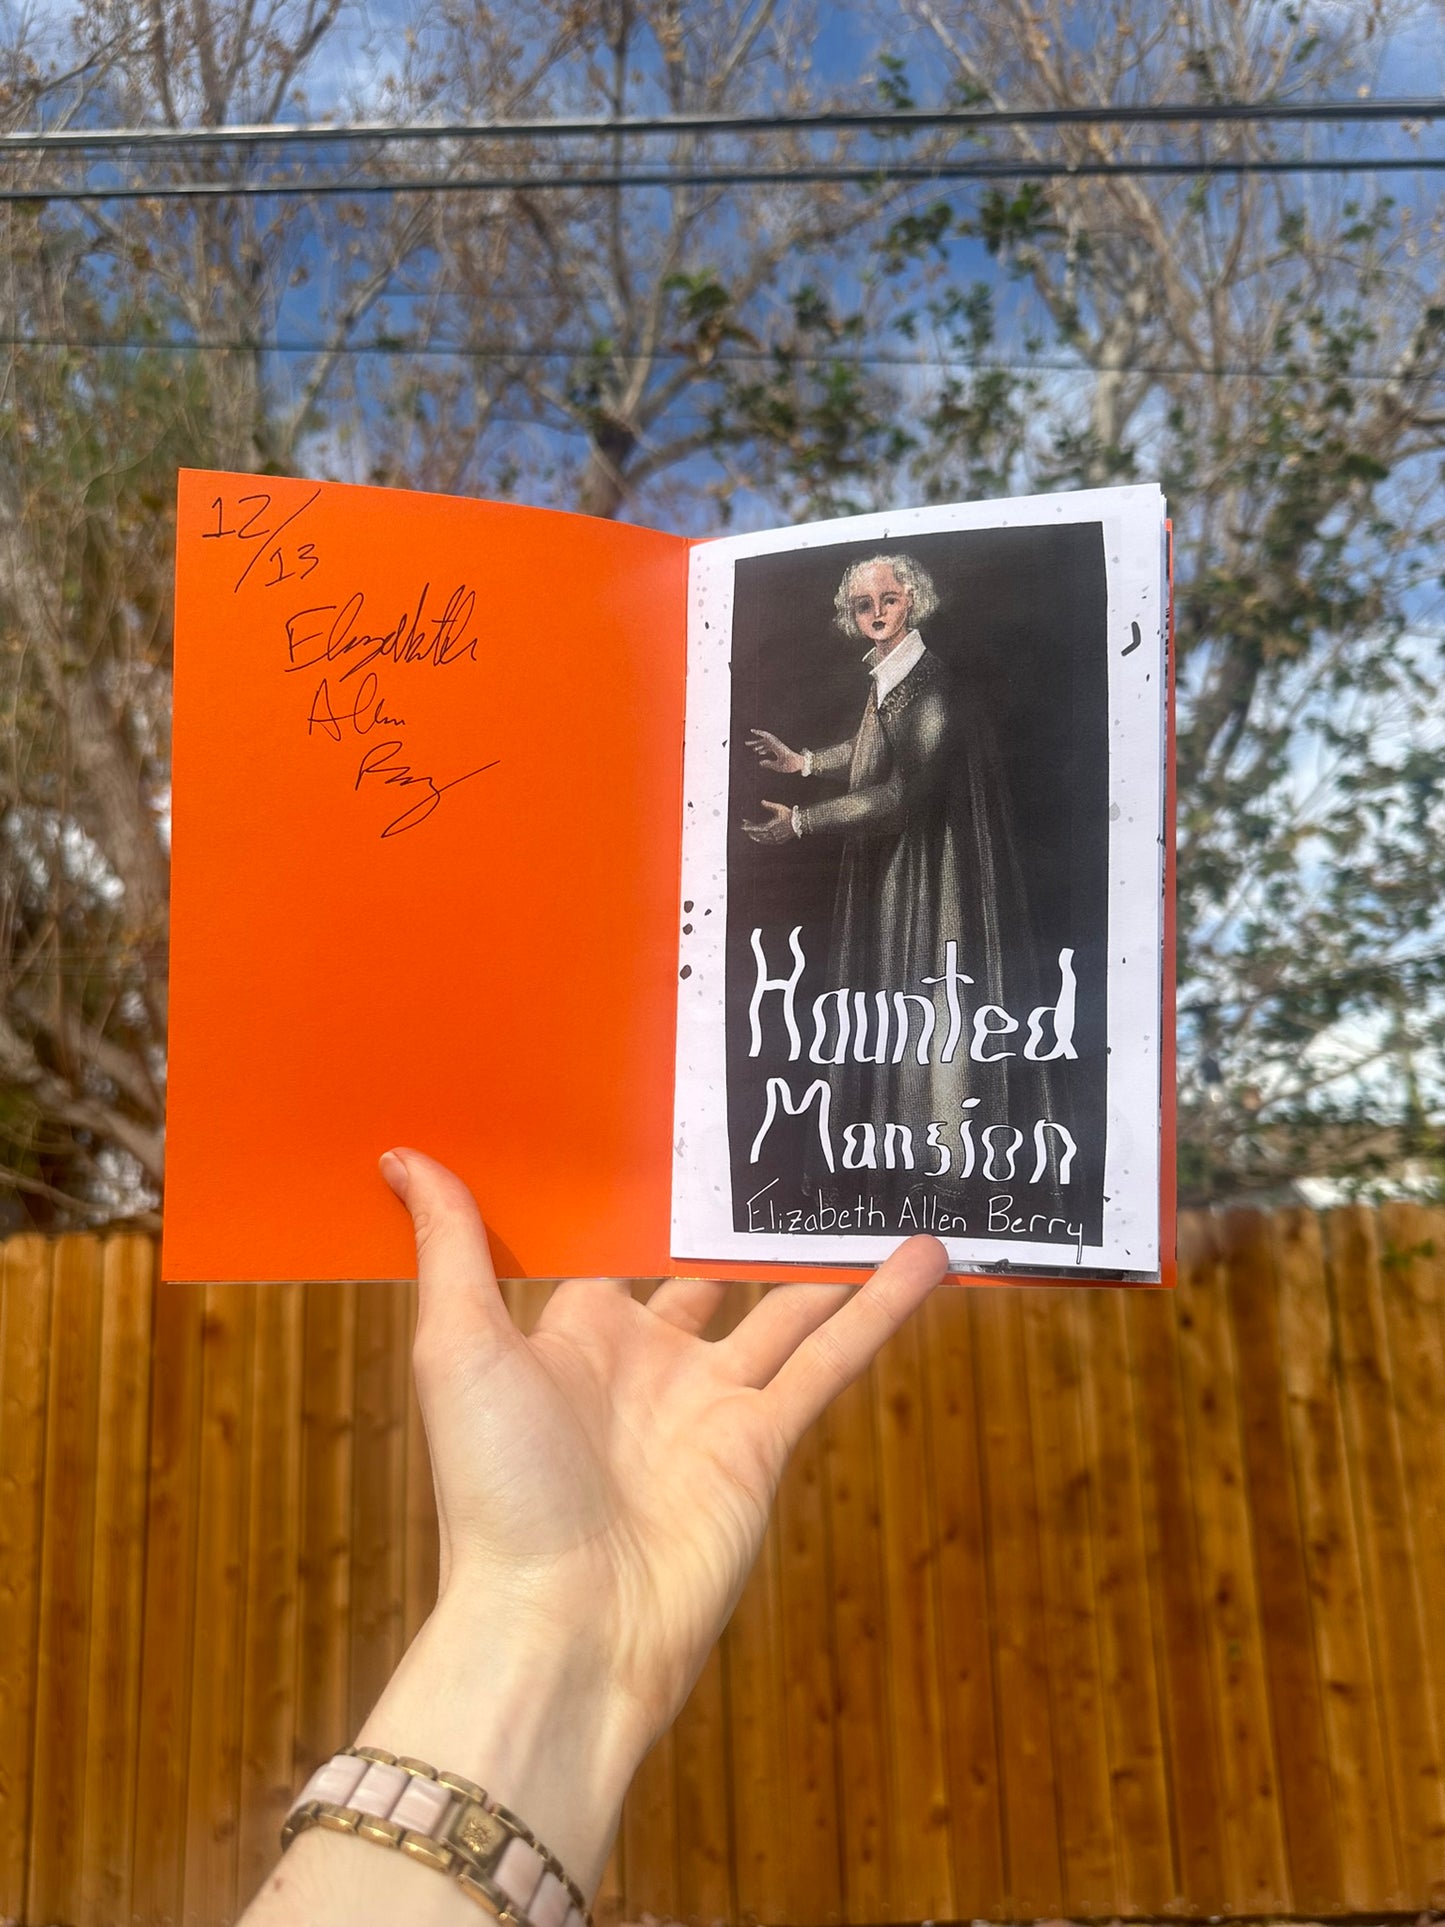 12/13
Elizabeth
Allen
Berry
Haunted
Mansion
Elizabeth Allen Berry